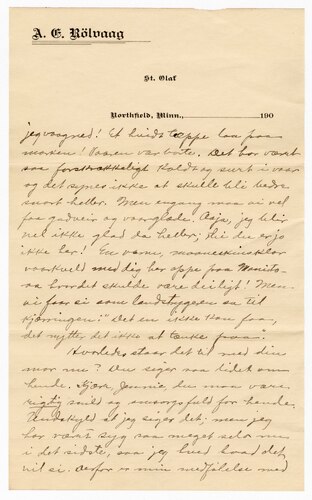 A. E. Rölvaag
St. Olaf
Northfield, Minn., 190
jeg vaagned! Et hvidt tæppe laa paa
marken! Vaaren var borte. Det har været
saa forskrækkeligt koldt og surt i vaar
og det synes ikke at skulle bli bedre
snart heller. Men engang maa vi vel
faa godveir og vaarglæde. Aaja, jeg blir
vel ikke glad da heller; thi du er jo
ikke her! En varm, maaneskinsklar
vaarkveld med dig her oppe paa Manito-
aa hvor det skulde være deiligt! Men
vi faar si som landstrygeren sa til
kjærringen: "Det en ikke kan faa,
det nytter det ikke at tænke paa".
Hvorledes staar det til med din
mor nu? Du siger saa lidet om
hende. Kjære Jennie, du maa være
rigtig snild og omsorgsfuld for hende.
Undskyld at jeg siger det; men jeg
har vært syg saa meget selv nu
i det sidste, saa jeg hvad det
vil si. derfor er min medfølelse med